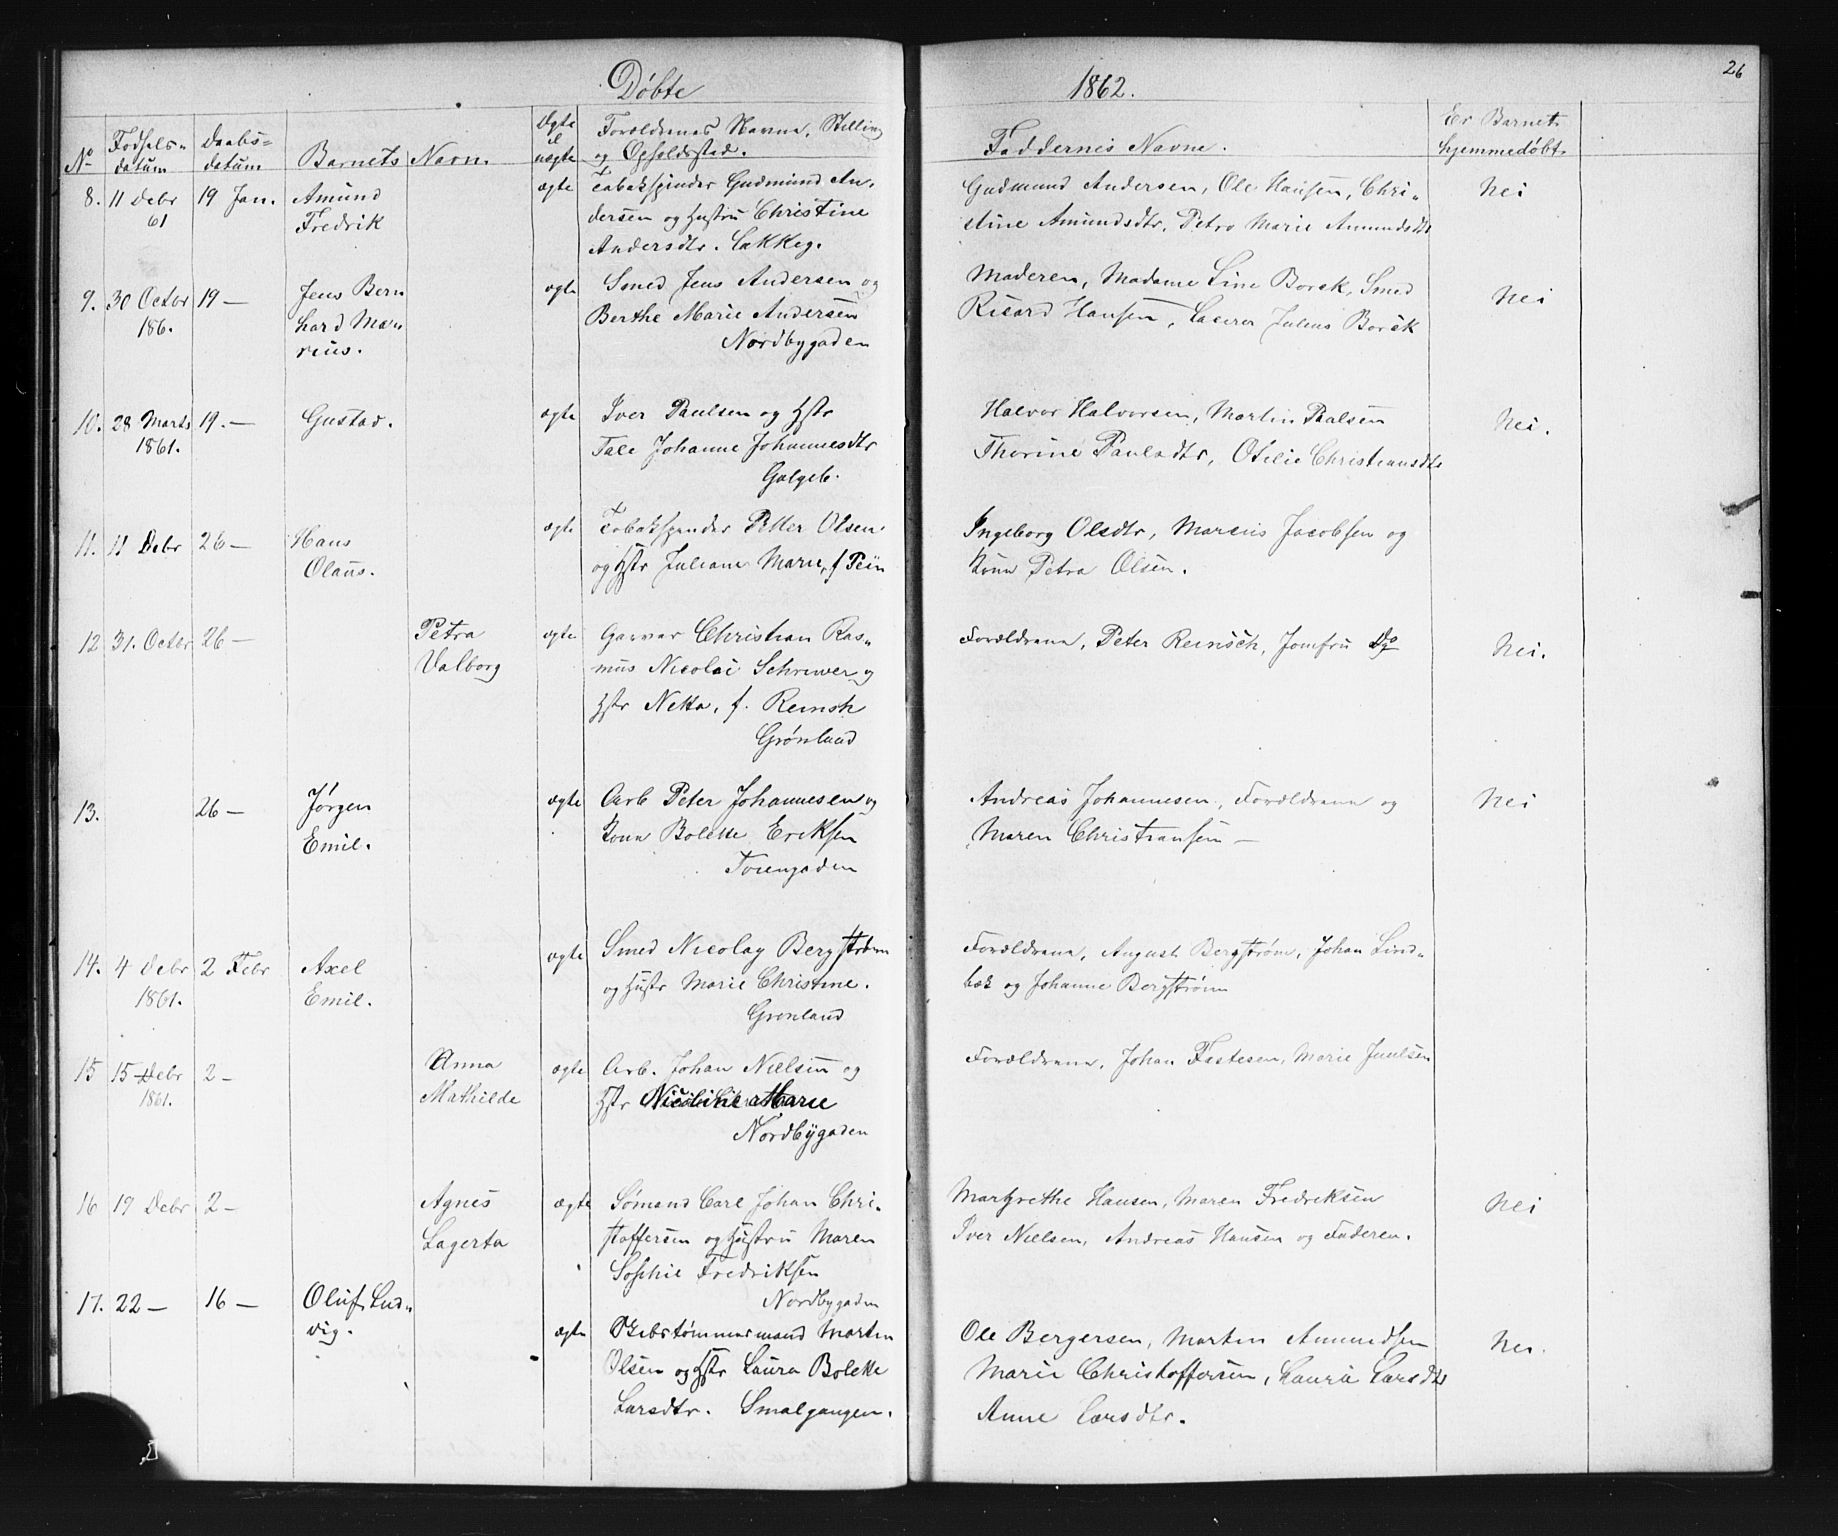 Døbte
1862.
26
No Fødsels-datum Daabs-datum Barnets Navn. Ægte el uægte Forældrenes Navne, Stilling og Opholdssted. Faddernes Navne. Er Barnet hjemmedøbt.
8. 11 Debr 19 Jan. Amund ægte Tobakspinder Gudmund An- Gudmund Andersen, Ole Hansen, Chri- Nei
61 Fredrik dersen og Hustru Christine stine Amundsdtr, Petra Marie Amundsdtr
Andersdtr. Lakkeg.
9. 30 Octbr 19 — Jens Bern ægte Smed Jens Andersen og Moderen, Madame Line Borck, Smed Nei
186. hard Ma- Berthe Marie Andersen Ricard Hansen, Laerer Julius Borck
rius. Nordbygaden
10. 28 Marts 19. — Gustav. ægte Iver Paulsen og Hstr Halvor Halvorsen, Martin Paalsen Nei.
1861. Tale Johanne Johannesdtr Thorine Paulsdtr, Otilie Christiansdtr
Galgeb.
11. 11 Debr 26 — Hans ægte Tobakspinder Petter Olsen Ingeborg Olsdtr, Marcus Jacobsen og
Olaus. og Hstr Juliane Marie, f Kone Petra Olsen.
12 31. Octbr 26 — Petra ægte Garver Christian Ras- Forældrene, Peter Reinsch, Jomfru Do Nei.
Valborg mus Nicolai Schriwer og
Hstr Netta, f. Reinsh
Grønland
13. 26 — Jørgen ægte Arb Peter Johannesen og Andreas Johannesen, Forældrene og Nei
Emil. Kone Bolette Eriksen Maren Christiansen —
14. 4 Debr 2 Febr Axel ægte Smed Nicolay Bergstrøm Forældrene, August Bergstrøm, Johan Lind-
1861. Emil. og Hustr Marie Christine. bæk og Johanne Bergstrøm
Grønland
15 15 Debr 2 — Anna ægte Arb. Johan Nielsen og Forældrene, Johan Fastesen, Marie Juulsen
1861. Mathilde Hstr Nicoline Marie
Nordbygaden
16 19 Debr 2 — Agnes ægte Sømand Carl Johan Chri- Margrethe Hansen, Maren Fredriksen Nei
Lagerta stoffersen og Hustru Maren Iver Nielsen, Andreas Hansen og Faderen.
Sophie Fredriksen
Nordbygaden
17. 22 — 16 — Oluf Lud-
vig. ægte Skibstømmermand Morten Ole Bergersen, Morten Amundsen Nei.
Olsen og Hstr Laura Bolette Marie Christoffersen, Laura Larsdtr
Larsdtr. Smalgangen. Anne Larsdtr.